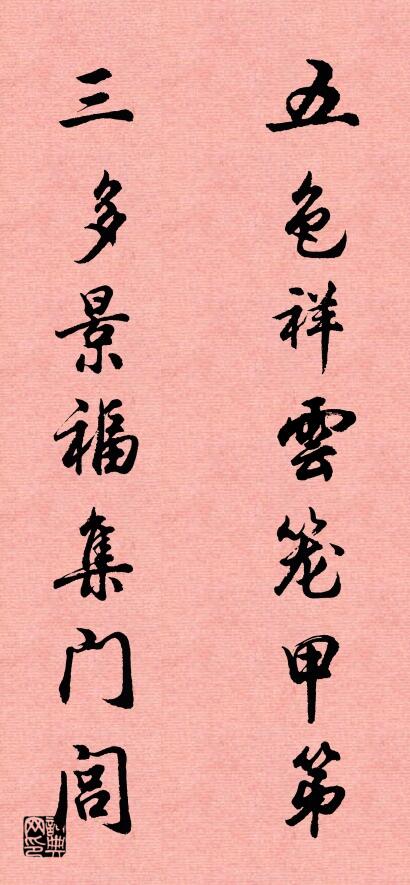 五色祥雲笼甲第
三多景福集门闾